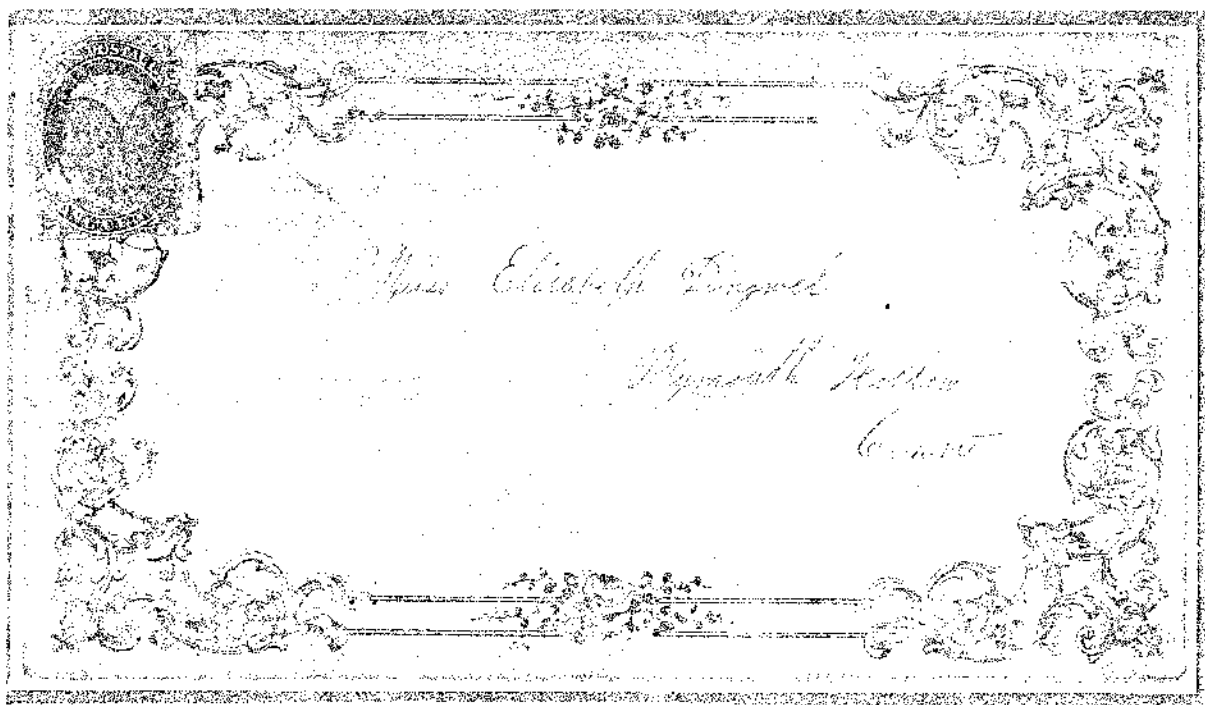 Miss Elizabeth
Plymouth Hollow
Connt